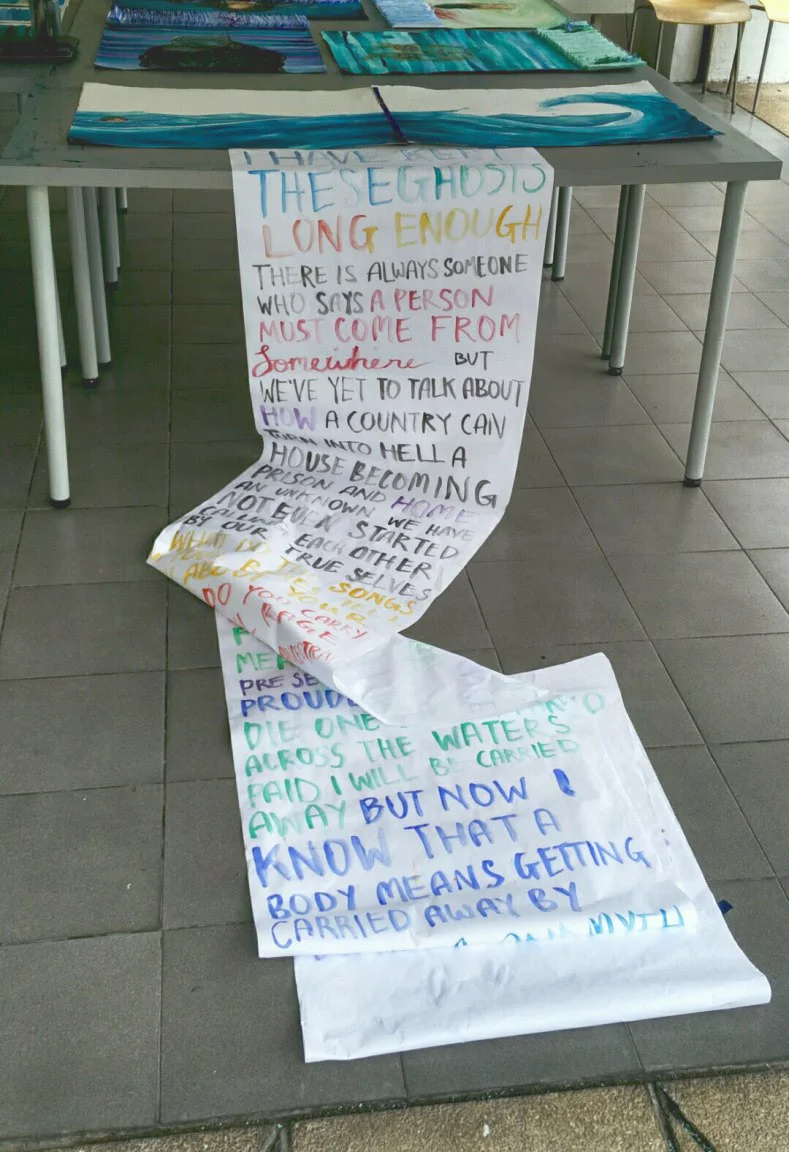 I HAVE KEPT
THESE GHOSTS
LONG ENOUGH
THERE IS ALWAYS SOMEONE
WHO SAYS A PERSON
MUST COME FROM
Somewhere BUT
WE'VE YET TO TALK ABOUT
HOW A COUNTRY CAN
TURN INTO HELL A
HOUSE BECOMING
PRISON AND HOME
AN UNKNOWN WE HAVE
NOT EVEN STARTED
CALLING EACH OTHER
BY OUR TRUE SELVES
WHAT DO THE SONGS
YOUR
DO YOU CARRY
PROUD
DIE ONE
ACROSS THE WATERS
PAID I WILL BE CARRIED
AWAY BUT NOW I
KNOW THAT A
BODY MEANS GETTING
CARRIED AWAY BY